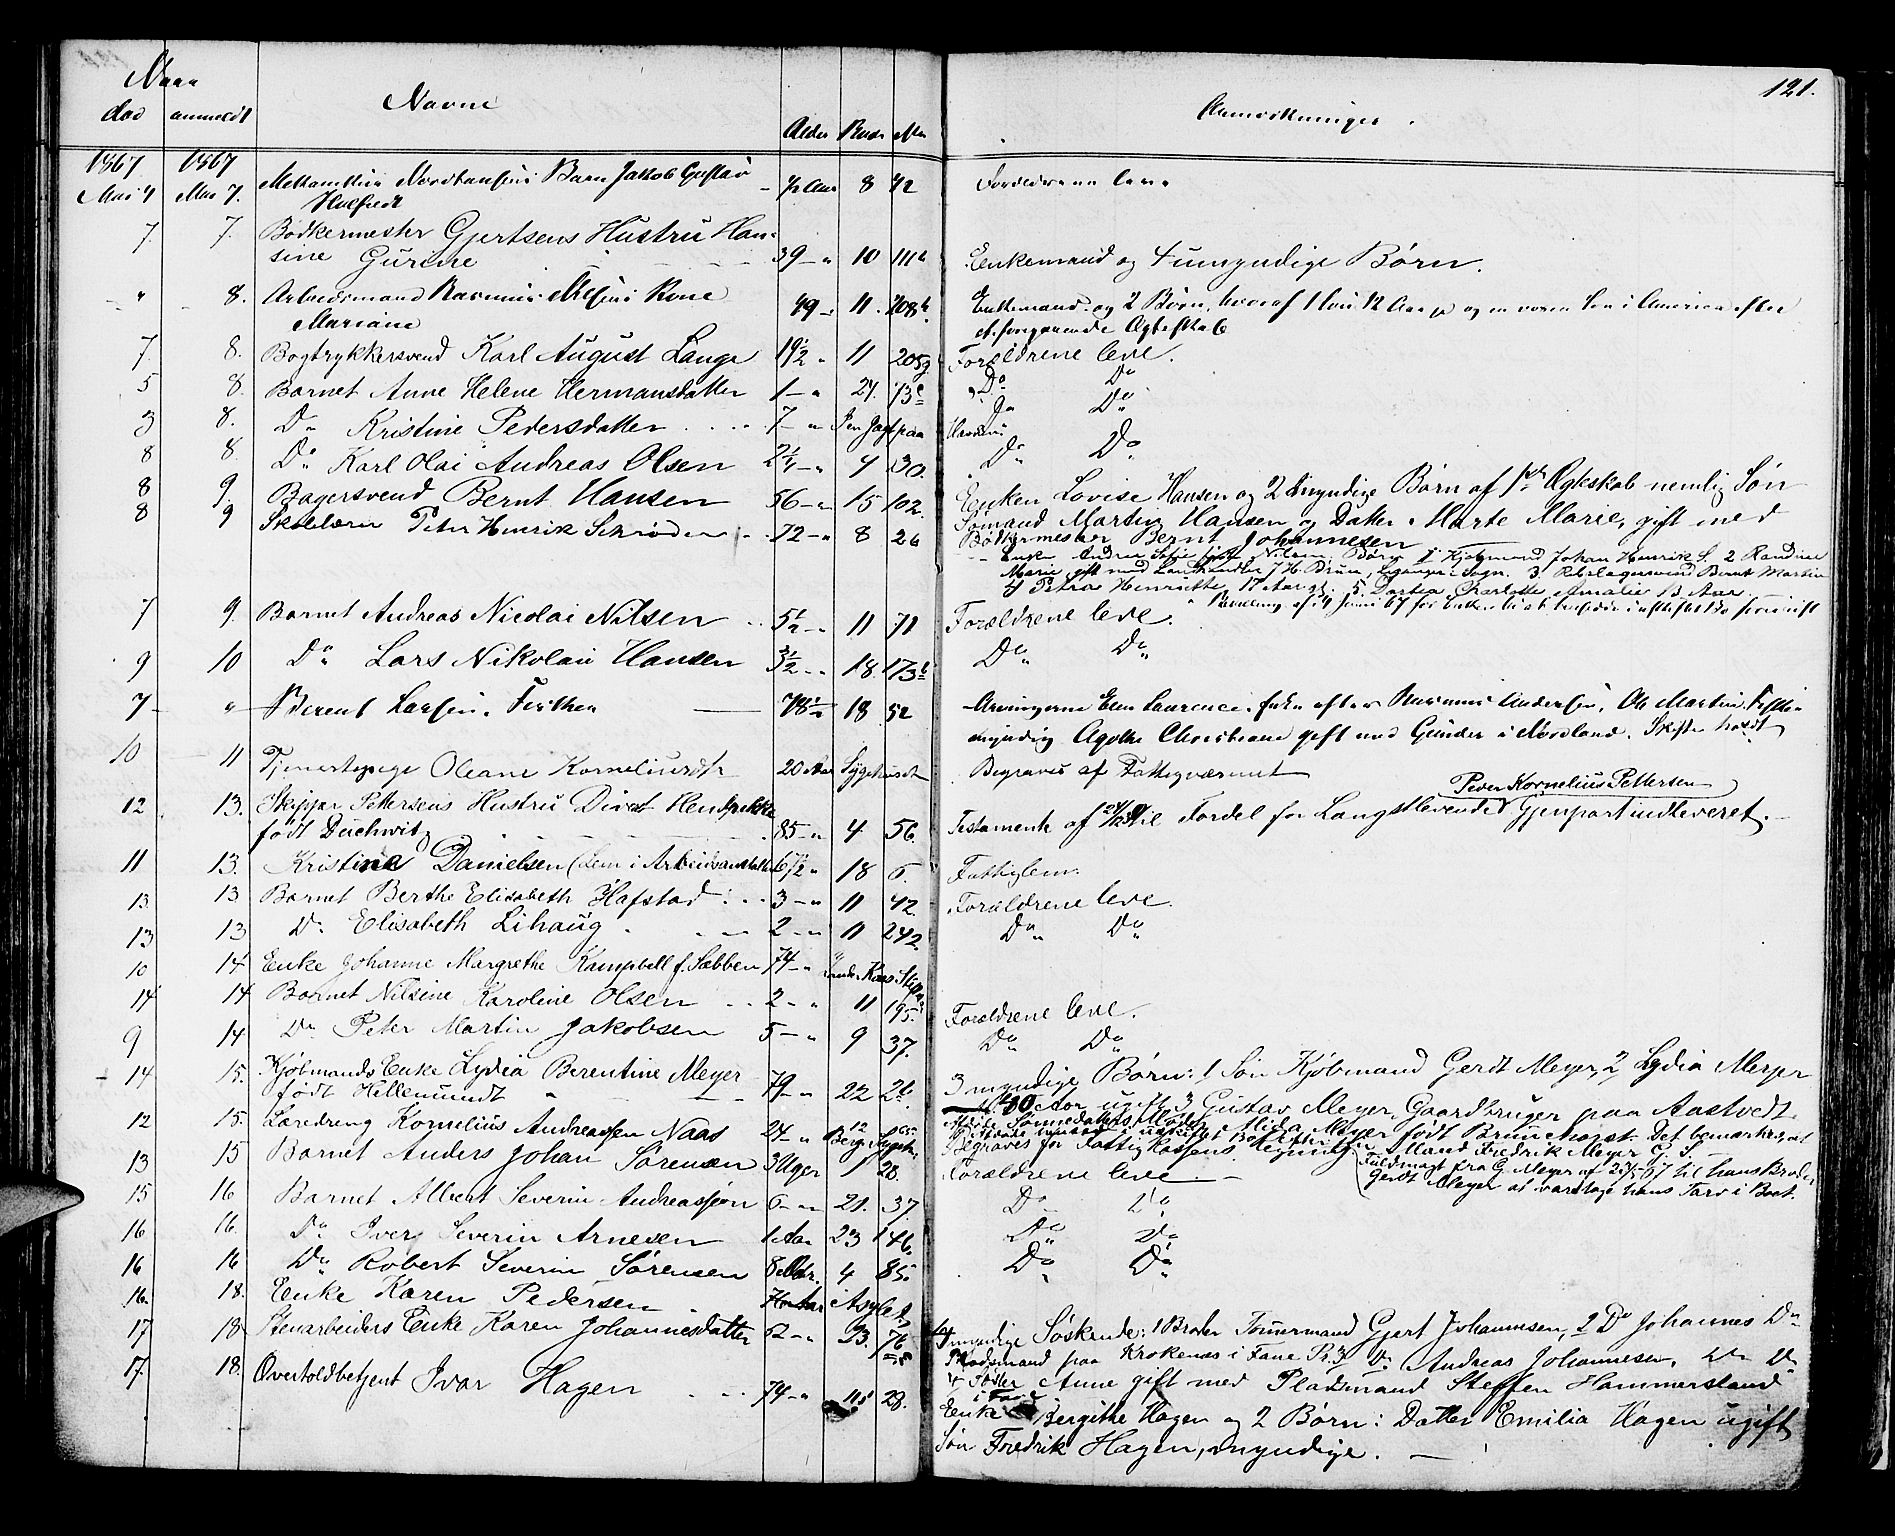 121.
Naar
død anmeldt Navne Alder Rode No Anmærkninger.
1867 1867
Mai 4 Mai 7. Nordhansens Barn Jakob Gustav ½ Aar 8 42 Forældrene leve
7. 7. Bødkermester Gjertsens Hustru Han-
sine Gurine 39 - " 10 111 b Enkemand og 4 umyndige Børn.
" 8. Arbeidsmand Rasmus Kone 49 11. 208 b. Enkemand og 2 Børn, hvoraf 1 12 Aar og en voxen Søn i America efter
Mariane et foregaaende Ægteskab
7. 8. Bogtrykkersvend Karl August Lange 19½ " 11 205 g. Forældrene leve.
5 8. Barnet Anne Helene Hermansdatter 1 - " 24. 13 c Do Do
3 8. Do Kristine Pedersdatter 7 - " I en Jagt paa Havnen Do Do
8 8. Do Karl Olai Andreas Olsen 2¼ - " 4 30. Do Do
8 9. Bagersvend Bernt Hansen 56 - " 15 102. Enken Lovise Hansen og 2 myndige Børn af 1ste Ægtskab nemlig Søn
Sømand Martin Hansen og Datter Marte Marie, gift med
Bødkermester Bernt Johannesen
8 9 Peter Henrik Schrøder 72 - " 8 26 Enke Andrea Sofie født Nilsen. Børn 1. Kjøbmand Johan Henrik S. 2 Randine
Marie gift med Landhandler J H. Bruun, Leganger Sogn. 3. Bernt Martin
4 Petra Henriette 17 Aar gl. 5. Dortea Charlotte Amalie 13 Aar.
7 9. Barnet Andreas Nicolai Nilsen 5½ - " 11 71 Forældrene leve.
9 10 Do Lars Nikolai Hansen 3½ - " 18. 173 b Do Do
7 " Berent Larsen 78½ 18 52 Arvingerne Elen Laurence, Enke efter Rasmus Andersen, Ole Martin
myndig Agathe Christiane gift med Günder i Nordland. Skifte holdt
10 11 Tjenestepige Oleane Korneliusdtr 20 Aar Sygehuset Begraves af Fattigvæsenet
Peder Kornelius Pettersen
12 13. Skipper Pettersens Hustru Divert
født Duchwitz 85 - " 4. 56. Testamente af til Fordel for Længstlevende Gjenpart indleveret.
11 13. Kristine Danielsen (Lem i Arbeidsanstalten 67½ " 18 6. Fattiglem.
13 13 Barnet Berthe Elisabeth Hafstad 3 - " 11 42. Forældrene leve.
13 13 Do Elisabeth Lihaug 2 - " 11 242. Do Do
10 14 Enke Johanne Margrethe Kampbell f. Sæbben 74 - "
14 14 Barnet Nilsine Karoline Olsen 2 - " 11 195. Forældrene leve.
9 14 Do Peter Martin Jakobsen 5 - " 9 37. Do Do
14 15. Kjøbmands Enke Lydia Berentine Meyer
født Hellemundt 79 - " 22 26. 3 myndige Børn: 1 Søn Kjøbmand Gerdt Meyer, 2 Lydia Meyer
40 Aar ugift 3 Gustav Meyer, Gaardbruger paa Aastvedt.
12 15. Læredreng Kornelius Andreassen Naas 24 - " Bergs Sygeh. Alida Meyer født Brunchorst. Det bemærkes, at
Begraves for Fattigkassens Regning Mand Fredrik Meyer
13 15 Barnet Anders Johan Sørensen 3 Uger 1 28. Forældrene leve. Fuldmagt fra G. Meyer af til hans Broder
Gerdt Meyer at varetage hans Tarv i Boet.
15 16 Barnet Albert Severin Andreassen 6 - " 21. 37. Do Do
16 16. Do Iver Severin Arnesen 1 Aar 23 146. Do Do
16 16 Do Robert Severin Sørensen 8 Mdr. 4 85. Do Do
16. 18. Enke Karen Pedersen i Asylet
17 18. Stenarbeiders Enke Karen Johannesdatter 62 - " 23. 76 4 myndige Søskende: 1 Broder Tømmermand Gjert Johannesen, 2 Do Johannes Do
Pladsmand paa Krokenæs i Fane Pr. 3 Do Andreas Johannesen, Do Do
4 Søster Anne gift med Pladsmand Steffen Hammersland
i Fane
17. 18. Overtoldbetjent Ivar Hagen 74 - " 115 28. Enke Bergithe Hagen og 2 Børn: Datter Emilia Hagen ugift
Søn Fredrik Hagen, myndige.